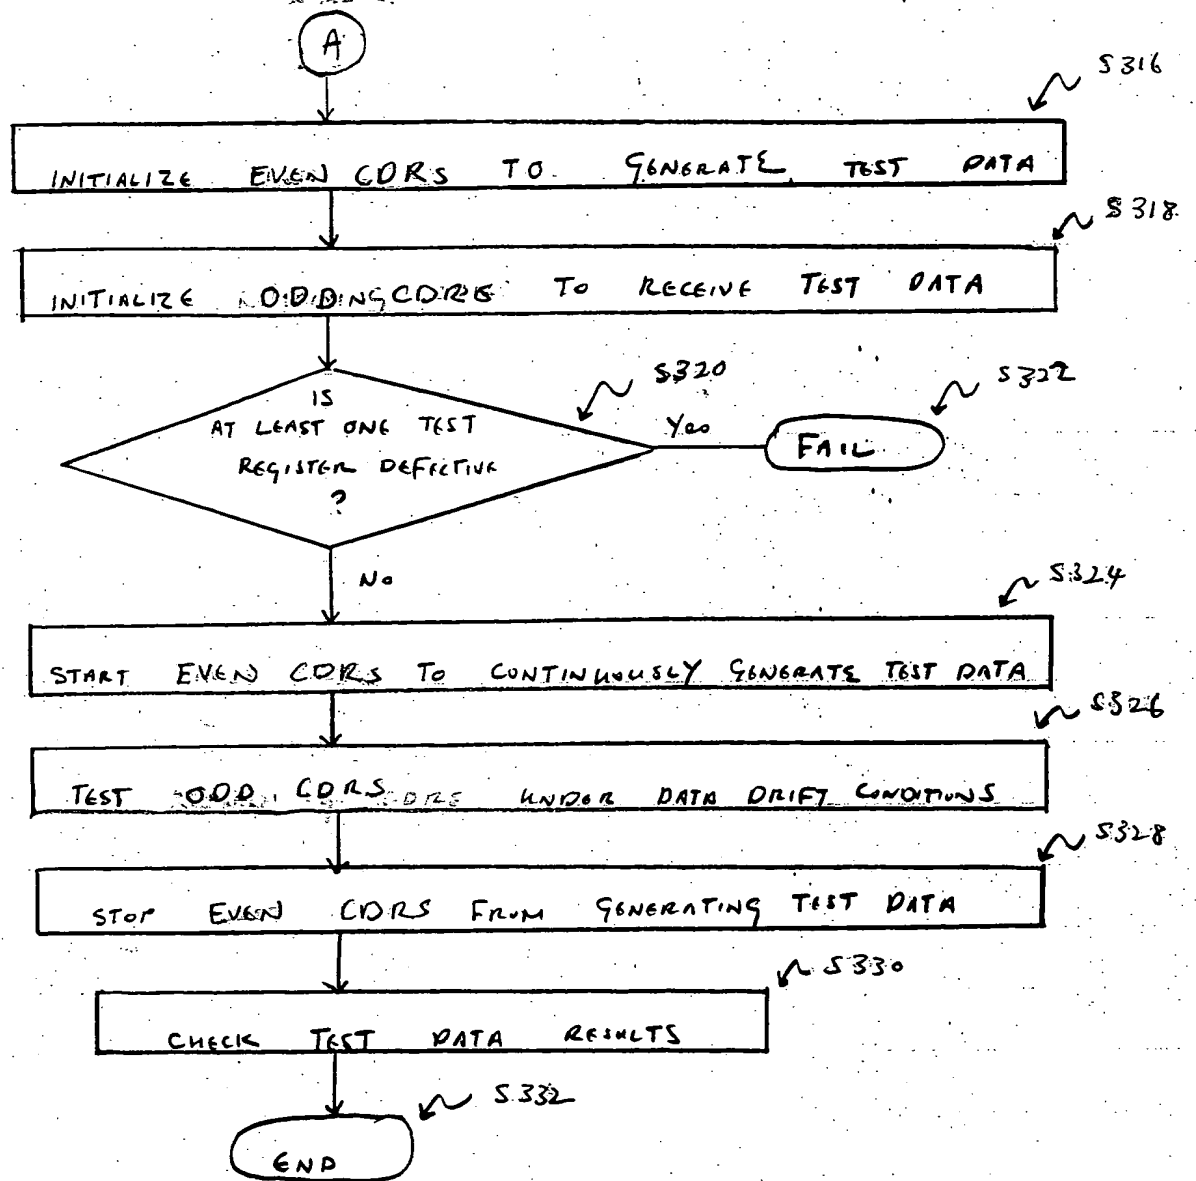 A
S316
INITIALIZE EVEN CDRS TO GENERATE TEST DATA
S318
INITIALIZE TO RECEIVE TEST DATA
S320
S322
IS
AT LEAST ONE TEST
REGISTER DEFECTIVE
?
Yes
FAIL
No
S324
START EVEN CDRS TO CONTINUOUSLY GENERATE TEST DATA
S326
TEST ODD CDRS UNDER DATA DRIFT CONDITIONS
S328
STOP EVEN CDRS FROM GENERATING TEST DATA
S330
CHECK TEST DATA RESULTS
S332
END